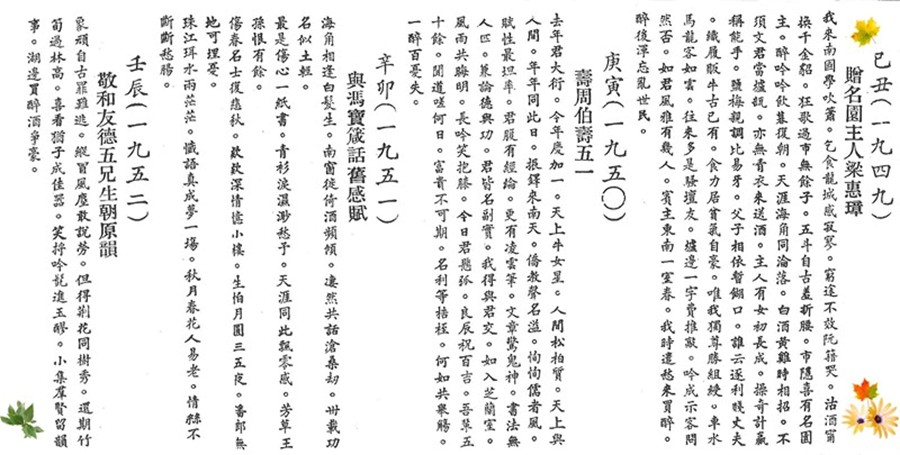 己丑(一九四九)
贈名園主人梁惠璋
我來南國學吹簫。乞食龍城感寂寥。窮途不效阮籍哭。沽酒甯
換千金貂。狂歌過市無餘子。五斗自古羞折腰。市隱喜有名園
主。醉吟吟飲暮復朝。天涯海角同淪落。白酒黃雞時相招。不
須文君當壚誚。亦無青衣來送酒。主人有女初長成。操奇計贏
稱能手。鹽梅親調比易牙。父子相依暫餬口。誰云逐利賤丈夫
。織履販牛古已有。食力居貧氣自豪。唯我獨尊勝組綬。車水
馬龍客如雲。往來多是騷壇友。壚邊一字費推敲。吟成示客問
然否。如君風雅有幾人。賓主東南一室春。我時遣愁來買醉。
醉後渾忘亂世民。
庚寅(一九五〇)
壽周伯壽五一
去年君大衍。今年慶加一。天上牛女星。人間松柏質。天上與
人間。年年同此日。振鐸來南天。僑教聲名溢。恂恂儒者風。
賦性最坦率。君腹有經綸。更有凌雲筆。文章驚鬼神。書法無
人匹。兼論德與功。君皆名副實。我得與君交。如入芝蘭室。
風雨共晦明。長吟笑抱膝。今日君懸弧。良辰祝百吉。吾草五
十餘。聞道嗟何日。富貴不可期。名利等桎。何如共舉觴。
一醉百憂失。
辛卯(一九五一)
與馮寶箴話舊感賦
海角相逢白髮生。南窗徙倚酒頻傾。淒然共話滄桑劫。卅載功
名似土輕。
最是傷心一紙書。青衫淚濕渺愁予。天涯同此飄零感。芳草王
孫恨有餘。
傷春名士復悲秋。深情憶小樓。生怕月圓三五夜。潘郎無
地可埋憂。
珠江珥水雨茫茫。懺語真成夢一場。秋月春花人易老。情絲不
斷斷愁腸。
壬辰(一九五二)
敬和友德五兄生朝原韻
頑自古罪難逃。縱冒風塵敢說勞。但得荊花同樹秀。還期竹
筍過林高。喜看猶子成佳器。笑捋吟髭進玉醪。小集羣賢留韻
事。湖邊買醉酒爭豪。